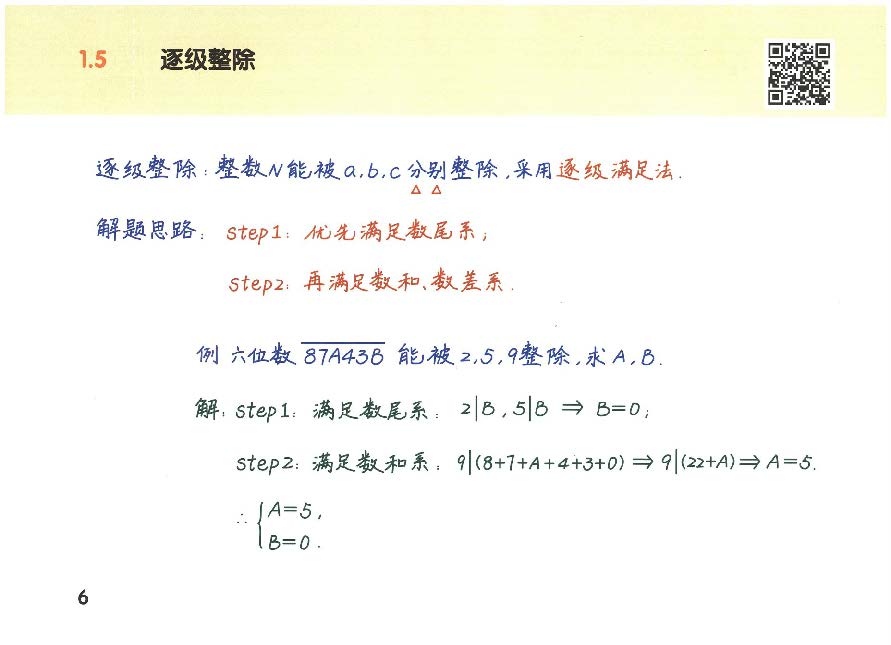 1.5 逐级整除
逐级整除：整数N能被a,b,c分别整除,采用逐级满足法.
△ △
解题思路： step1：优先满足数尾系；
step2：再满足数和、数差系.
例：六位数 87A43B 能被2,5,9整除,求A,B.
解：step1：满足数尾系：2|B,5|B ⇒ B=0；
step2：满足数和系：9|(8+7+A+4+3+0)⇒9|(22+A)⇒A=5.
∴ {A=5,
B=0.
6